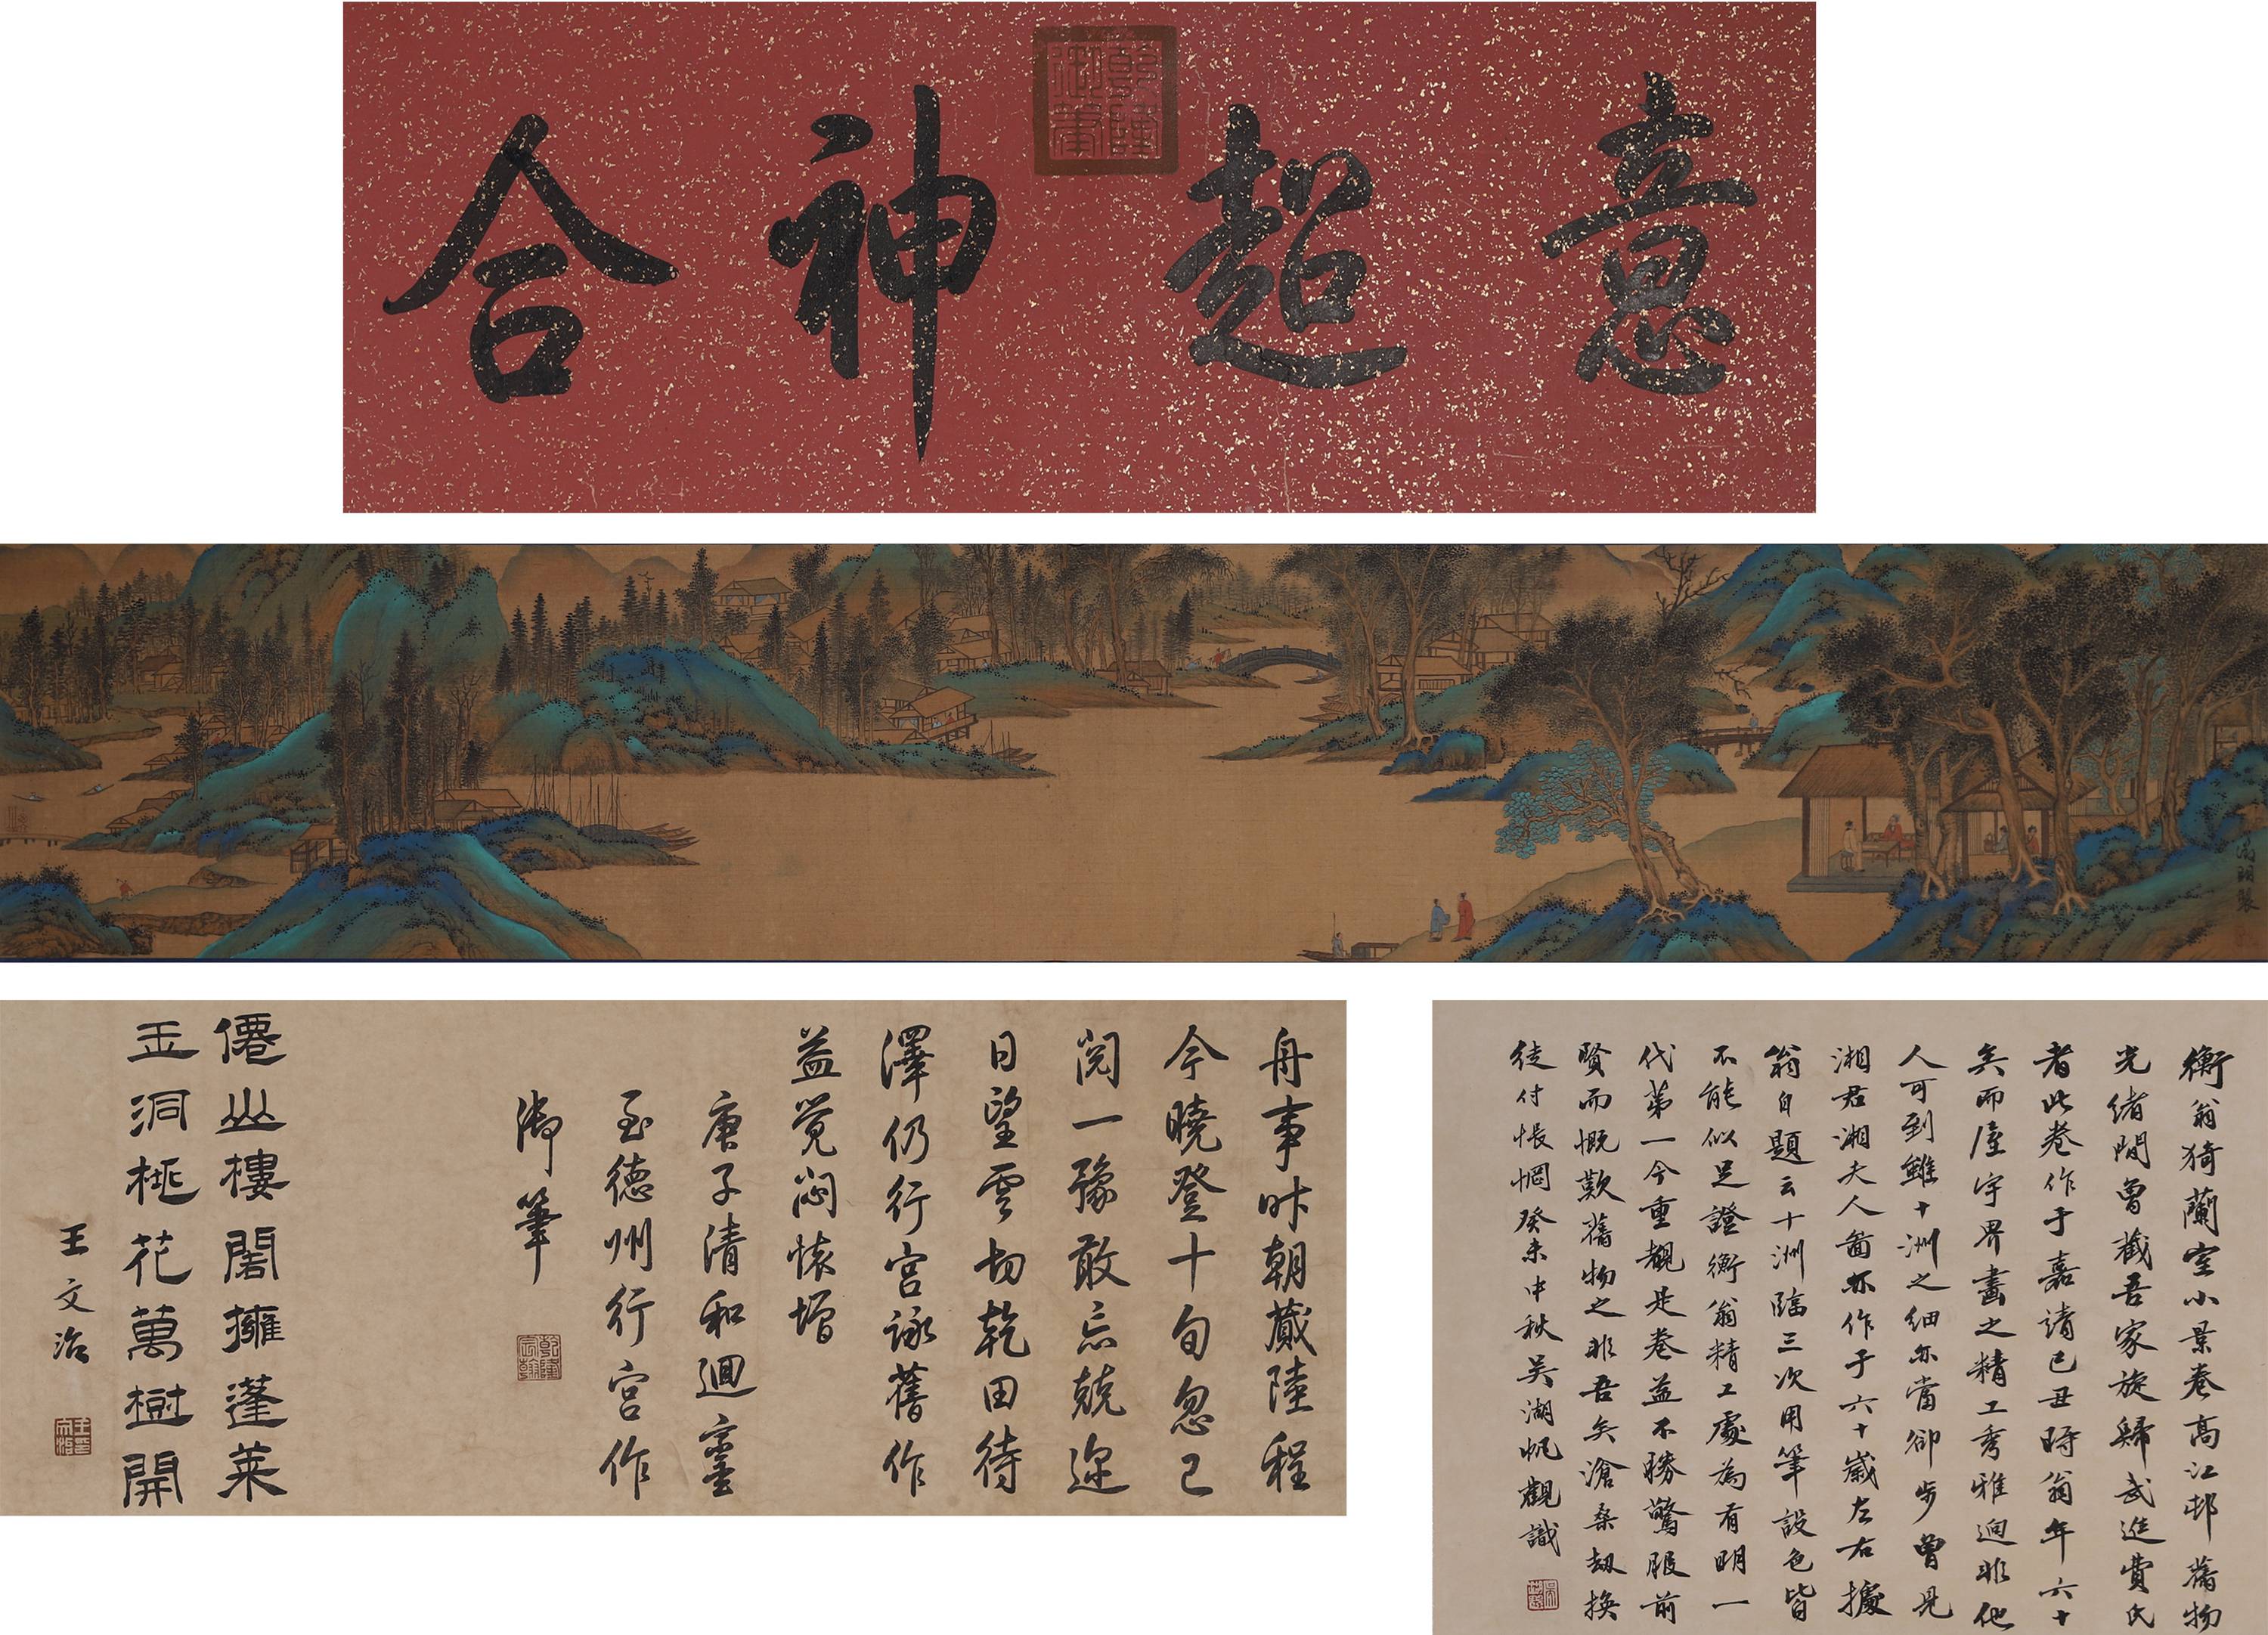 意超神合
乾隆御筆
馮翊琴
衡翁猗蘭室小景卷高江邨舊物
光緒間曾藏吾家旋歸武進費氏
者此卷作于嘉靖己丑時翁年六十
矣而屋宇界畫之精工秀雅迥非他
人可到雖十洲之細亦當卻步曾見
湘君湘夫人圖亦作于六十歲左右據
翁自題云十洲臨三次用筆設色皆
不能似足證衡翁精工處為有明一
代第一今重覩是卷益不勝驚服前
賢而慨歎舊物之非吾矣滄桑劫換
徒付悵惘癸未中秋吳湖帆觀識
舟事昨朝蕆陸程
今曉登十旬忽已
閱一豫敢忘兢邇
日望雲切乾田待
澤仍行宮詠舊作
益覺悶懷增
庚子清和迴鑾
至德州行宮作
御筆
乾隆宸翰
僊山樓閣擁蓬萊
玉洞桃花萬樹開
王文治
王文治印